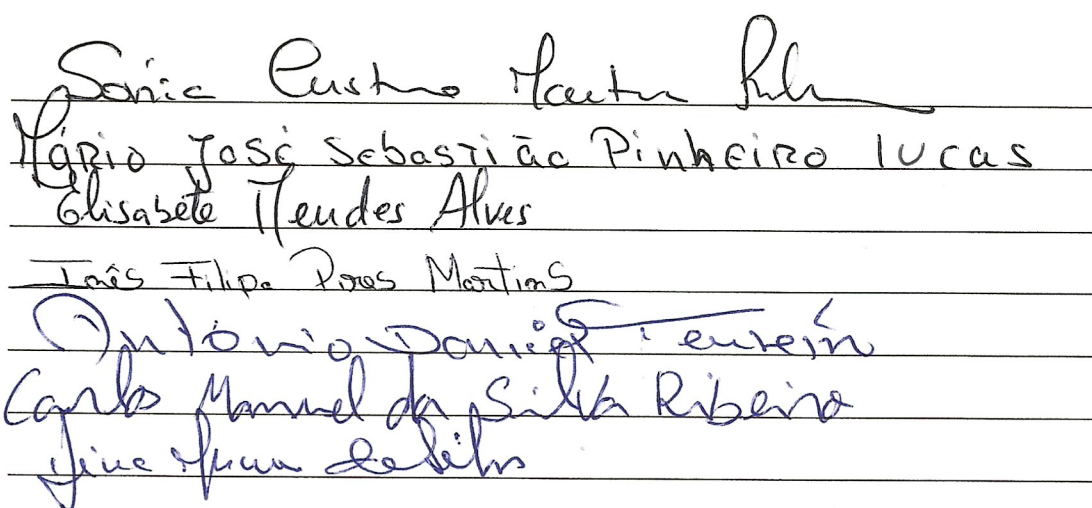 Sónia Martins
Mário José Sebastião Pinheiro Lucas
Elisabete Mendes Alves
Inês Filipa Pires Martins
António Daniel Ferreira
Carlos Manuel da Silva Ribeiro
da Silva